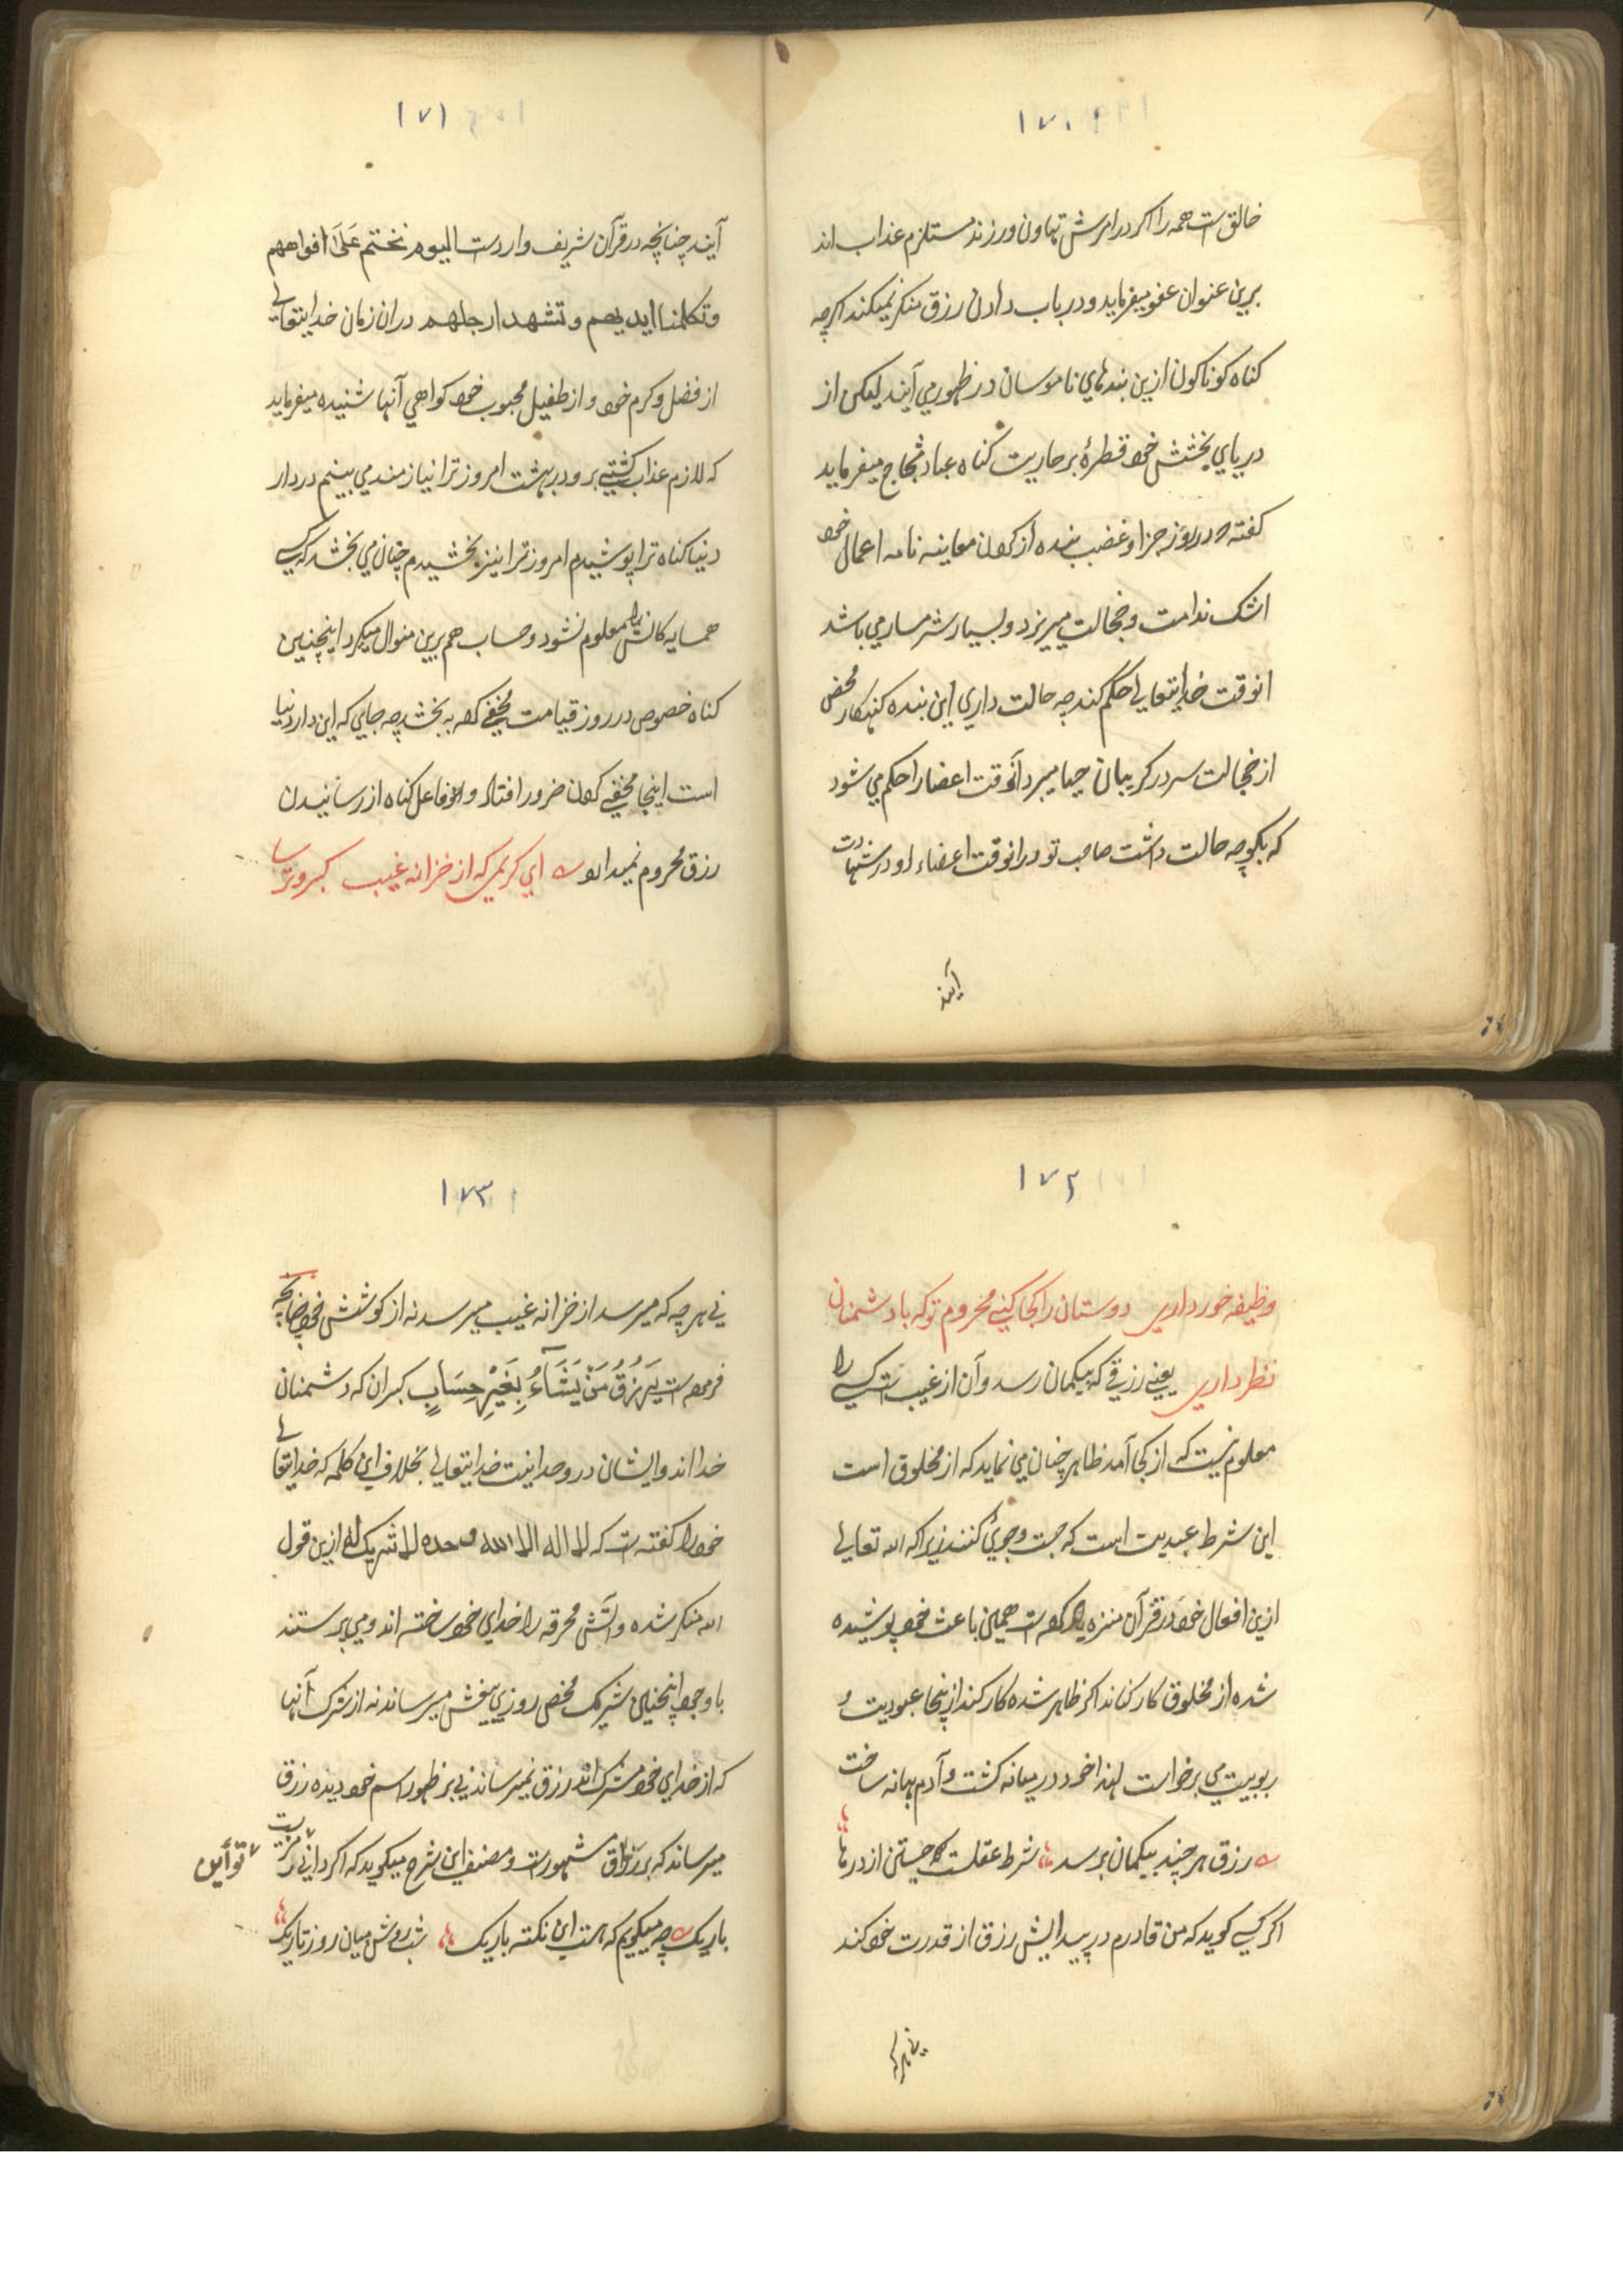 ۱۷۰
خالق ست همه را اکر در امرش تهاون ورزند مستلزم عذاب اند
برین عنوان عفو میفرماید و در باب دادن رزق منکر نمیکند اکرچه
کناه کوناکون ازین بندهای ناموسان در ظهور می آیند لیکن از
دریای بخشش خود قطرهٔ بر حاریت کناه عباد ثجاج میفرماید
کفته در روز جزا و غضب بنده از کردن معاینه نامه اعمال خود
اشک ندامت و خجالت میریزد و بسیار شرمسار می باشد
انوقت خدایتعالی حکم کند چه حالت داری این بنده کنهکار محض
از خجالت سر در کریبان حیا میبرد آنوقت اعضا را حکم می شود
که بکو چه حالت داشت صاحب تو درانوقت اعضاء او در شهادت
آیند
۱۷۱
آیند چنانچه در قرآن شریف وارد ست الیوم نختم علی افواههم
وتکلمنا ایدیهم وتشهد ارجلهم دران زمان خدایتعالی
از فضل و کرم خود و از طفیل محبوب خود کواهی آنها شنیده میفرماید
که لازم عذاب کشتی برو در بهشت امروز ترا نیازمند می بینم در دار
دنیا کناه ترا پوشیدم امروز ترا نیز بخشیدم چنان می بخشد که کسی
همسایه کانش را هم معلوم نشود و حساب هم برین منوال میکرد اینچنین
کناه خصوص در روز قیامت مخفی کرده ببخشد چه جایی که این دار دنیا
است اینجا مخفی کردن ضرور افتاد و او فاعل کناه از رسانیدن
رزق محروم نمیدارد ای کریمی که از خزانه غیب کبر و ترسا
۱۷۲
وظیفه خور داری دوستان را کجا کنی محروم تو که با دشمنان
نظر داری یعنی رزقی که بیکمان رسد و آن از غیب ست کسی را
معلوم نیست که از کجا آمد ظاهر چنان می نماید که از مخلوق است
این شرط عبدیت است که جست و جوئ کنند زیرا که الله تعالی
ازین افعال خود در قرآن منزه یاد کرده ست همین باعث خود پوشیده
شده از مخلوق کار کناند اکر ظاهر شده کار کند از پنجا عبودیت و
ربوبیت می برخواست لهذا خود در میانه کشت و آدم بهانه ساخت
رزق هر چند بیکمان برسد شرط عقلست جستن از درها
اکر کسی کوید که من قادرم در پیدایش رزق از قدرت خود کند
نی هر که
۱۷۳
نی هر چه که میرسد از خزانه غیب میرسد نه از کوشش خود چنانچه
فرموده ست یَرزُقُ مَن یَشَآءُ بِغَیرِ حِسَابٍ کبران که دشمنان
خدا اند و ایشان در وحدانیت خدایتعالی بخلاف این کلمه که خدایتعالی
خود را کفته ست که لا اله الا الله وحده لا شریک له ازین قول
الله منکر شده و آتش محرقه را خدای خود ساخته اند و می پرستند
باوجود اینچنین شریک محض روزی بیغش میرساند نه از شرک آنها
که از خدای خود مشرک اند رزق نمیرساند نی بر ظهور اسم خود دیده رزق
میرساند که برزاق مشهورست و مصنف این شرح میکوید که اکر دانی تو این بیت
باریک چه میکویم که هست این نکته باریک شب روشن میان روز تاریک